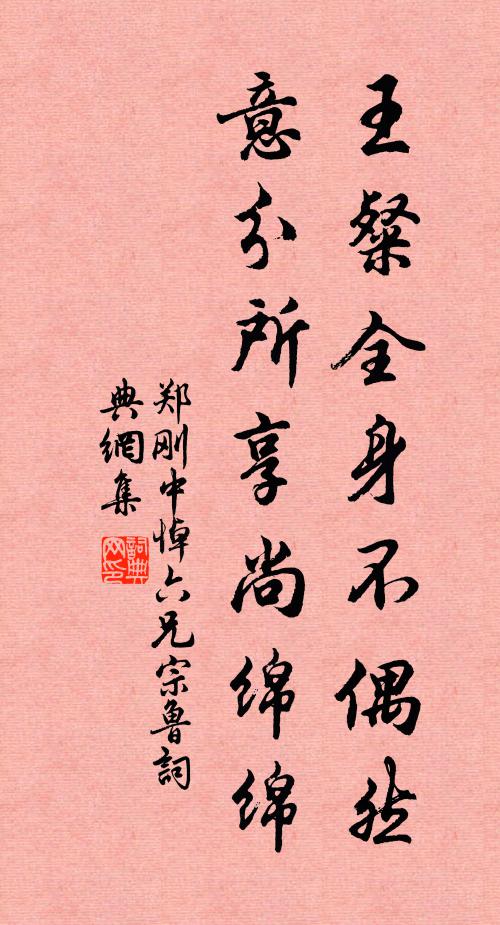 王粲全身不偶然
意分所享尚绵绵
郑刚中悼六兄宗鲁詞
典網集
詞典網印